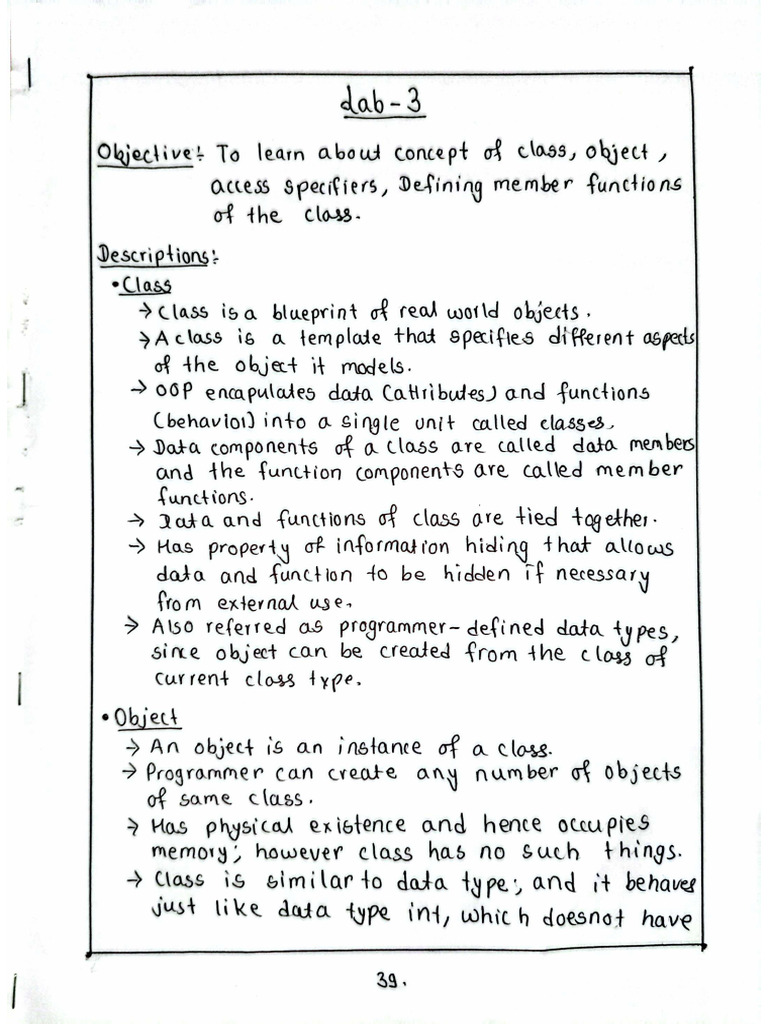 Lab-3
Objective:- To learn about concept of class, object,
access specifiers, Defining member functions
of the class.
Descriptions:-
• Class
→ Class is a blueprint of real world objects.
→ A class is a template that specifies different aspects
of the object it models.
→ OOP encapulates data (attributes) and functions
(behavior) into a single unit called classes.
→ Data components of a class are called data members
and the function components are called member
functions.
→ Data and functions of class are tied together.
→ Has property of information hiding that allows
data and function to be hidden if necessary
from external use.
→ Also referred as programmer-defined data types,
since object can be created from the class of
current class type.
• Object
→ An object is an instance of a class.
→ Programmer can create any number of objects
of same class.
→ Has physical existence and hence occupies
memory; however class has no such things.
→ Class is similar to data type; and it behaves
just like data type int, which doesnot have
39.